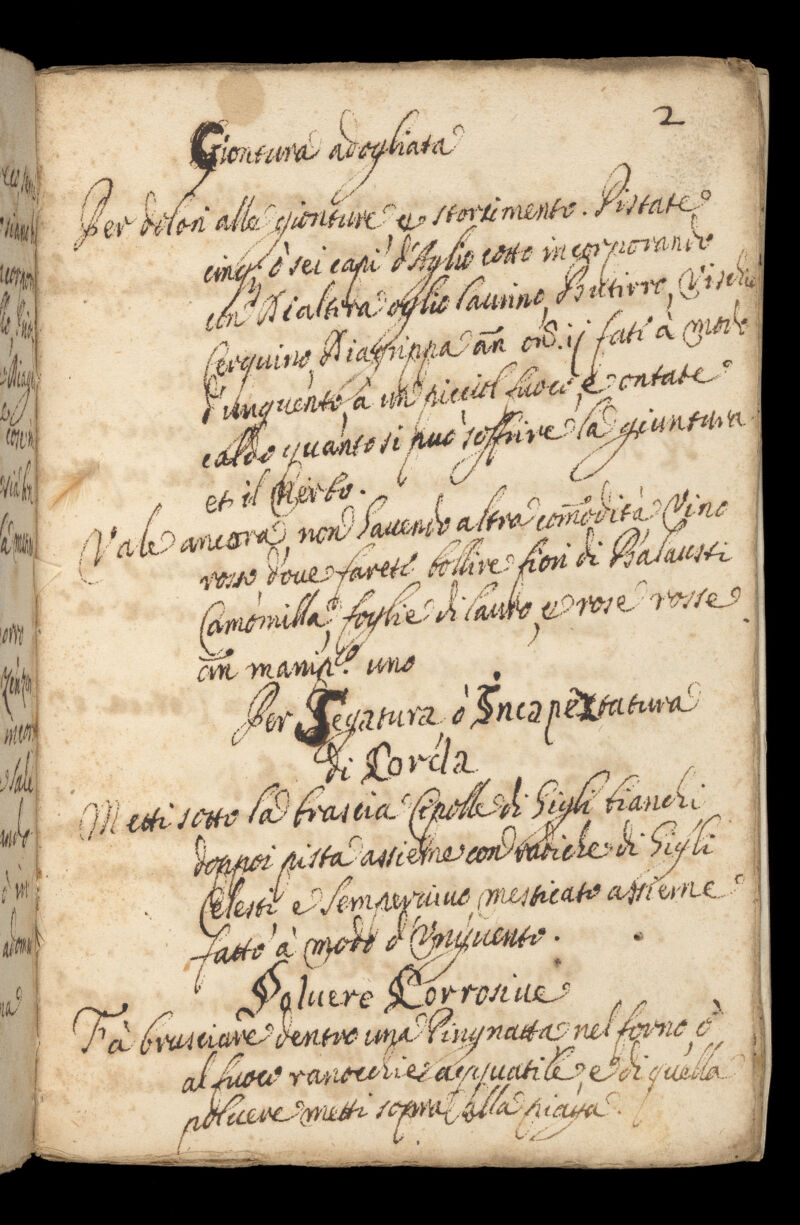 2
Giontura adogliata
Per dolori alle gionture e storcimento. Pistate
cinq; ò sei capi d'Aglio cotto incorporando
con Dialtera oglio laurino, Butirro, Vischio
Cerquino, Diagrippa an on. ij fati à modo
d'unguento à un picciol fuoco, e ontate
caldo quanto si può soffrire la giuntura
et il Nerbo.
Vale ancora non havendo altra comodità Vino
rosso dove fareti bollire fiori di Balausti
Camomilla, foglie di lauro, e rose rosse
an manip.o uno
Per Segatura ò Incapestatura
di Corda
Metti sotto la brascia Cipolle di Gigli bianchi
doppoi pista assieme con radiche di Gigli
Celesti e Sempervivo mesticato assieme
fatto à modo d'Unguento.
Polvere Corrosive
Fà brusciare dentro una Pingnatta nel forno, ò
al fuoco ranocchie acquatile e di quella
polvere metti sopra alla piaga.